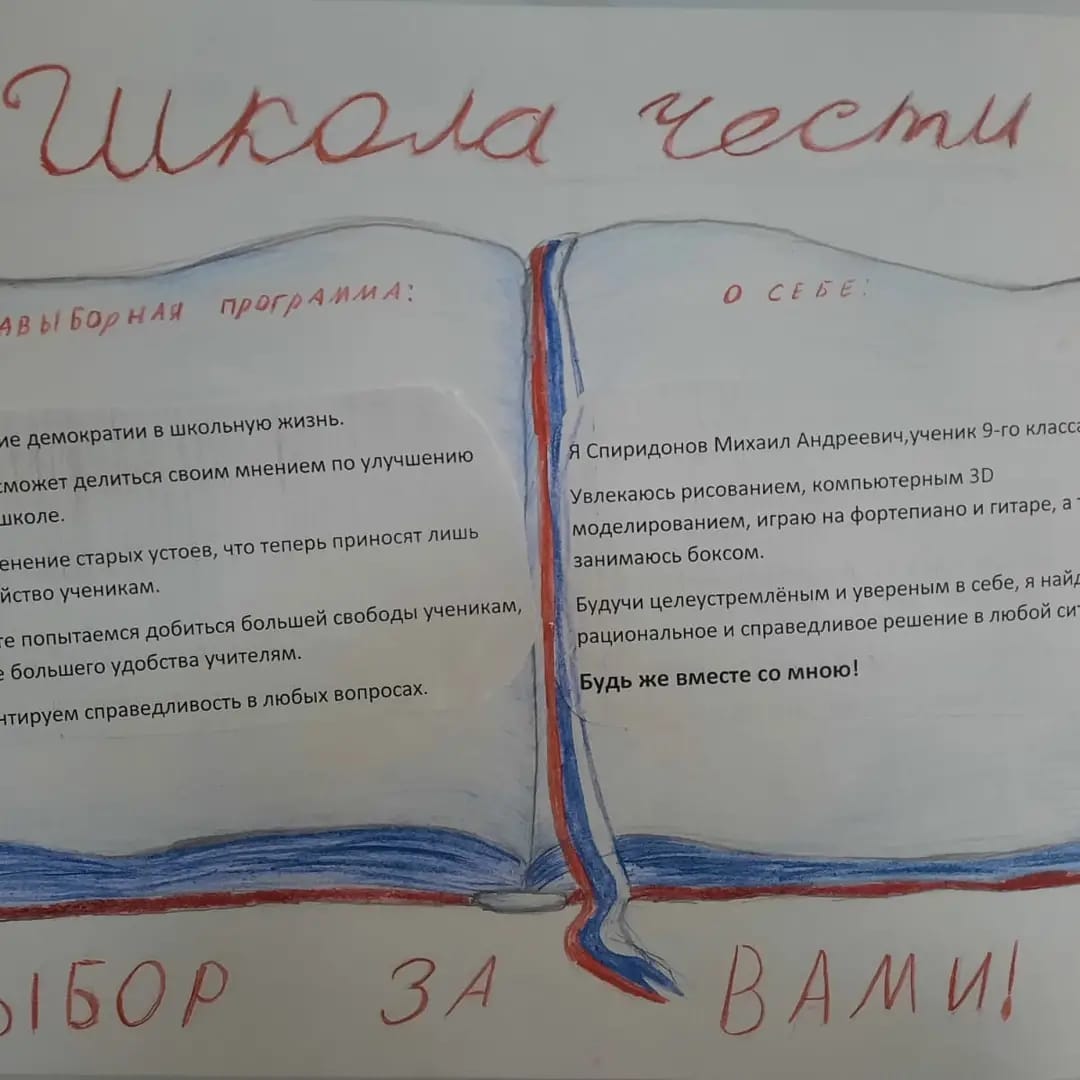 Школа чести
авыборная программа:
ие демократии в школьную жизнь.
сможет делиться своим мнением по улучшению
школе.
енение старых устоев, что теперь приносят лишь
йство ученикам.
те попытаемся добиться большей свободы ученикам,
е большего удобства учителям.
нтируем справедливость в любых вопросах.
О СЕБЕ:
Я Спиридонов Михаил Андреевич,ученик 9-го класса
Увлекаюсь рисованием, компьютерным 3D
моделированием, играю на фортепиано и гитаре, а т
занимаюсь боксом.
Будучи целеустремлёным и увереным в себе, я найд
рациональное и справедливое решение в любой сит
Будь же вместе со мною!
ЫБОР ЗА ВАМИ!